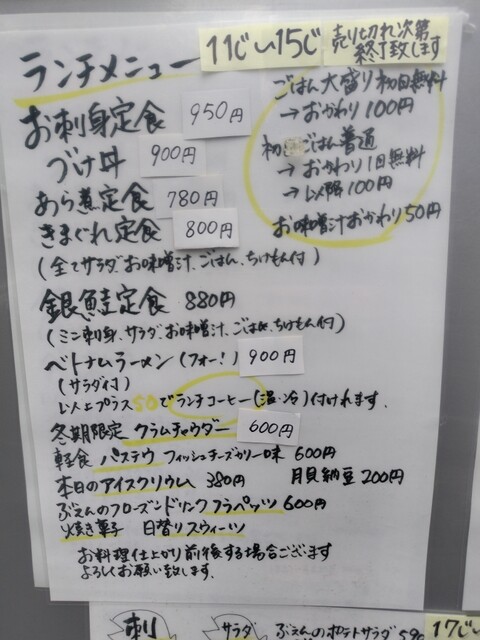 ランチメニュー
11じ〜15じ
売り切れ次第
終了致します
お刺身定食 950円
づけ丼 900円
あら煮定食 780円
きまぐれ定食 800円
(全てサラダ、お味噌汁、ごはん、ちけもん付)
ごはん大盛り初回無料
→おかわり100円
初 ごはん普通
→おかわり1回無料
→以降100円
お味噌汁おかわり50円
銀鮭定食 880円
(ミニ刺身、サラダ、お味噌汁、ごはん、ちけもん付)
ベトナムラーメン(フォー!) 900円
(サラダ付)
以上プラス50でランチコーヒー(温・冷)付けれます.
冬期限定 クラムチャウダー 600円
軽食 パステウ フィッシュチーズカリー味 600円
本日のアイスクリウム 380円 貝納豆200円
ぶえんのフローズンドリンク フラペッツ 600円
焼き菓子 日替りスウィーツ
お料理仕上がり前後する場合ございます
よろしくお願い致します.
刺
サラダ
ぶえんのポテトサラダ
17じ